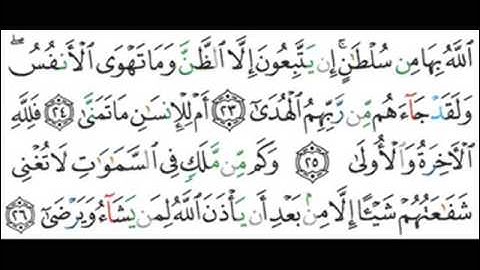 ٱللَّهُ بِهَا مِن سُلْطَٰنٍ ۚ إِن يَتَّبِعُونَ إِلَّا ٱلظَّنَّ وَمَا تَهْوَى ٱلْأَنفُسُ ۖ
وَلَقَدْ جَآءَهُم مِّن رَّبِّهِمُ ٱلْهُدَىٰٓ ٢٣ أَمْ لِلْإِنسَٰنِ مَا تَمَنَّىٰ ٢٤ فَلِلَّهِ
ٱلْءَاخِرَةُ وَٱلْأُولَىٰ ٢٥ وَكَم مِّن مَّلَكٍ فِى ٱلسَّمَٰوَٰتِ لَا تُغْنِى
شَفَٰعَتُهُمْ شَيْـًٔا إِلَّا مِنۢ بَعْدِ أَن يَأْذَنَ ٱللَّهُ لِمَن يَشَآءُ وَيَرْضَىٰٓ ٢٦